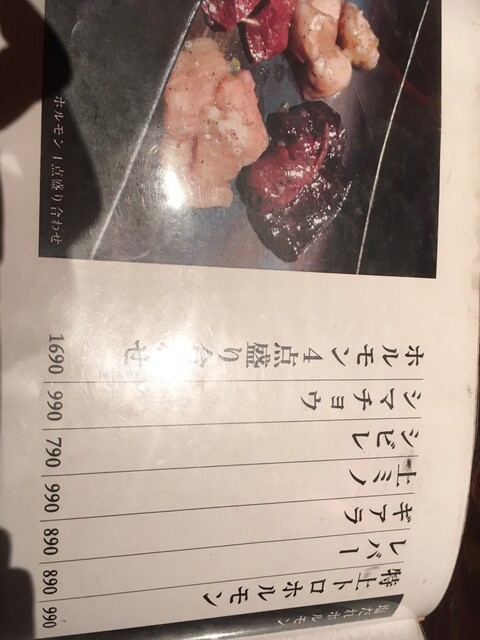 ホルモン4点盛り合わせ
ホルモン4点盛り合わせ 1690
シマチョウ 990
シビレ 790
上ミノ 990
ギアラ 890
レバー 890
特上トロホルモン 990
塩だれホルモン